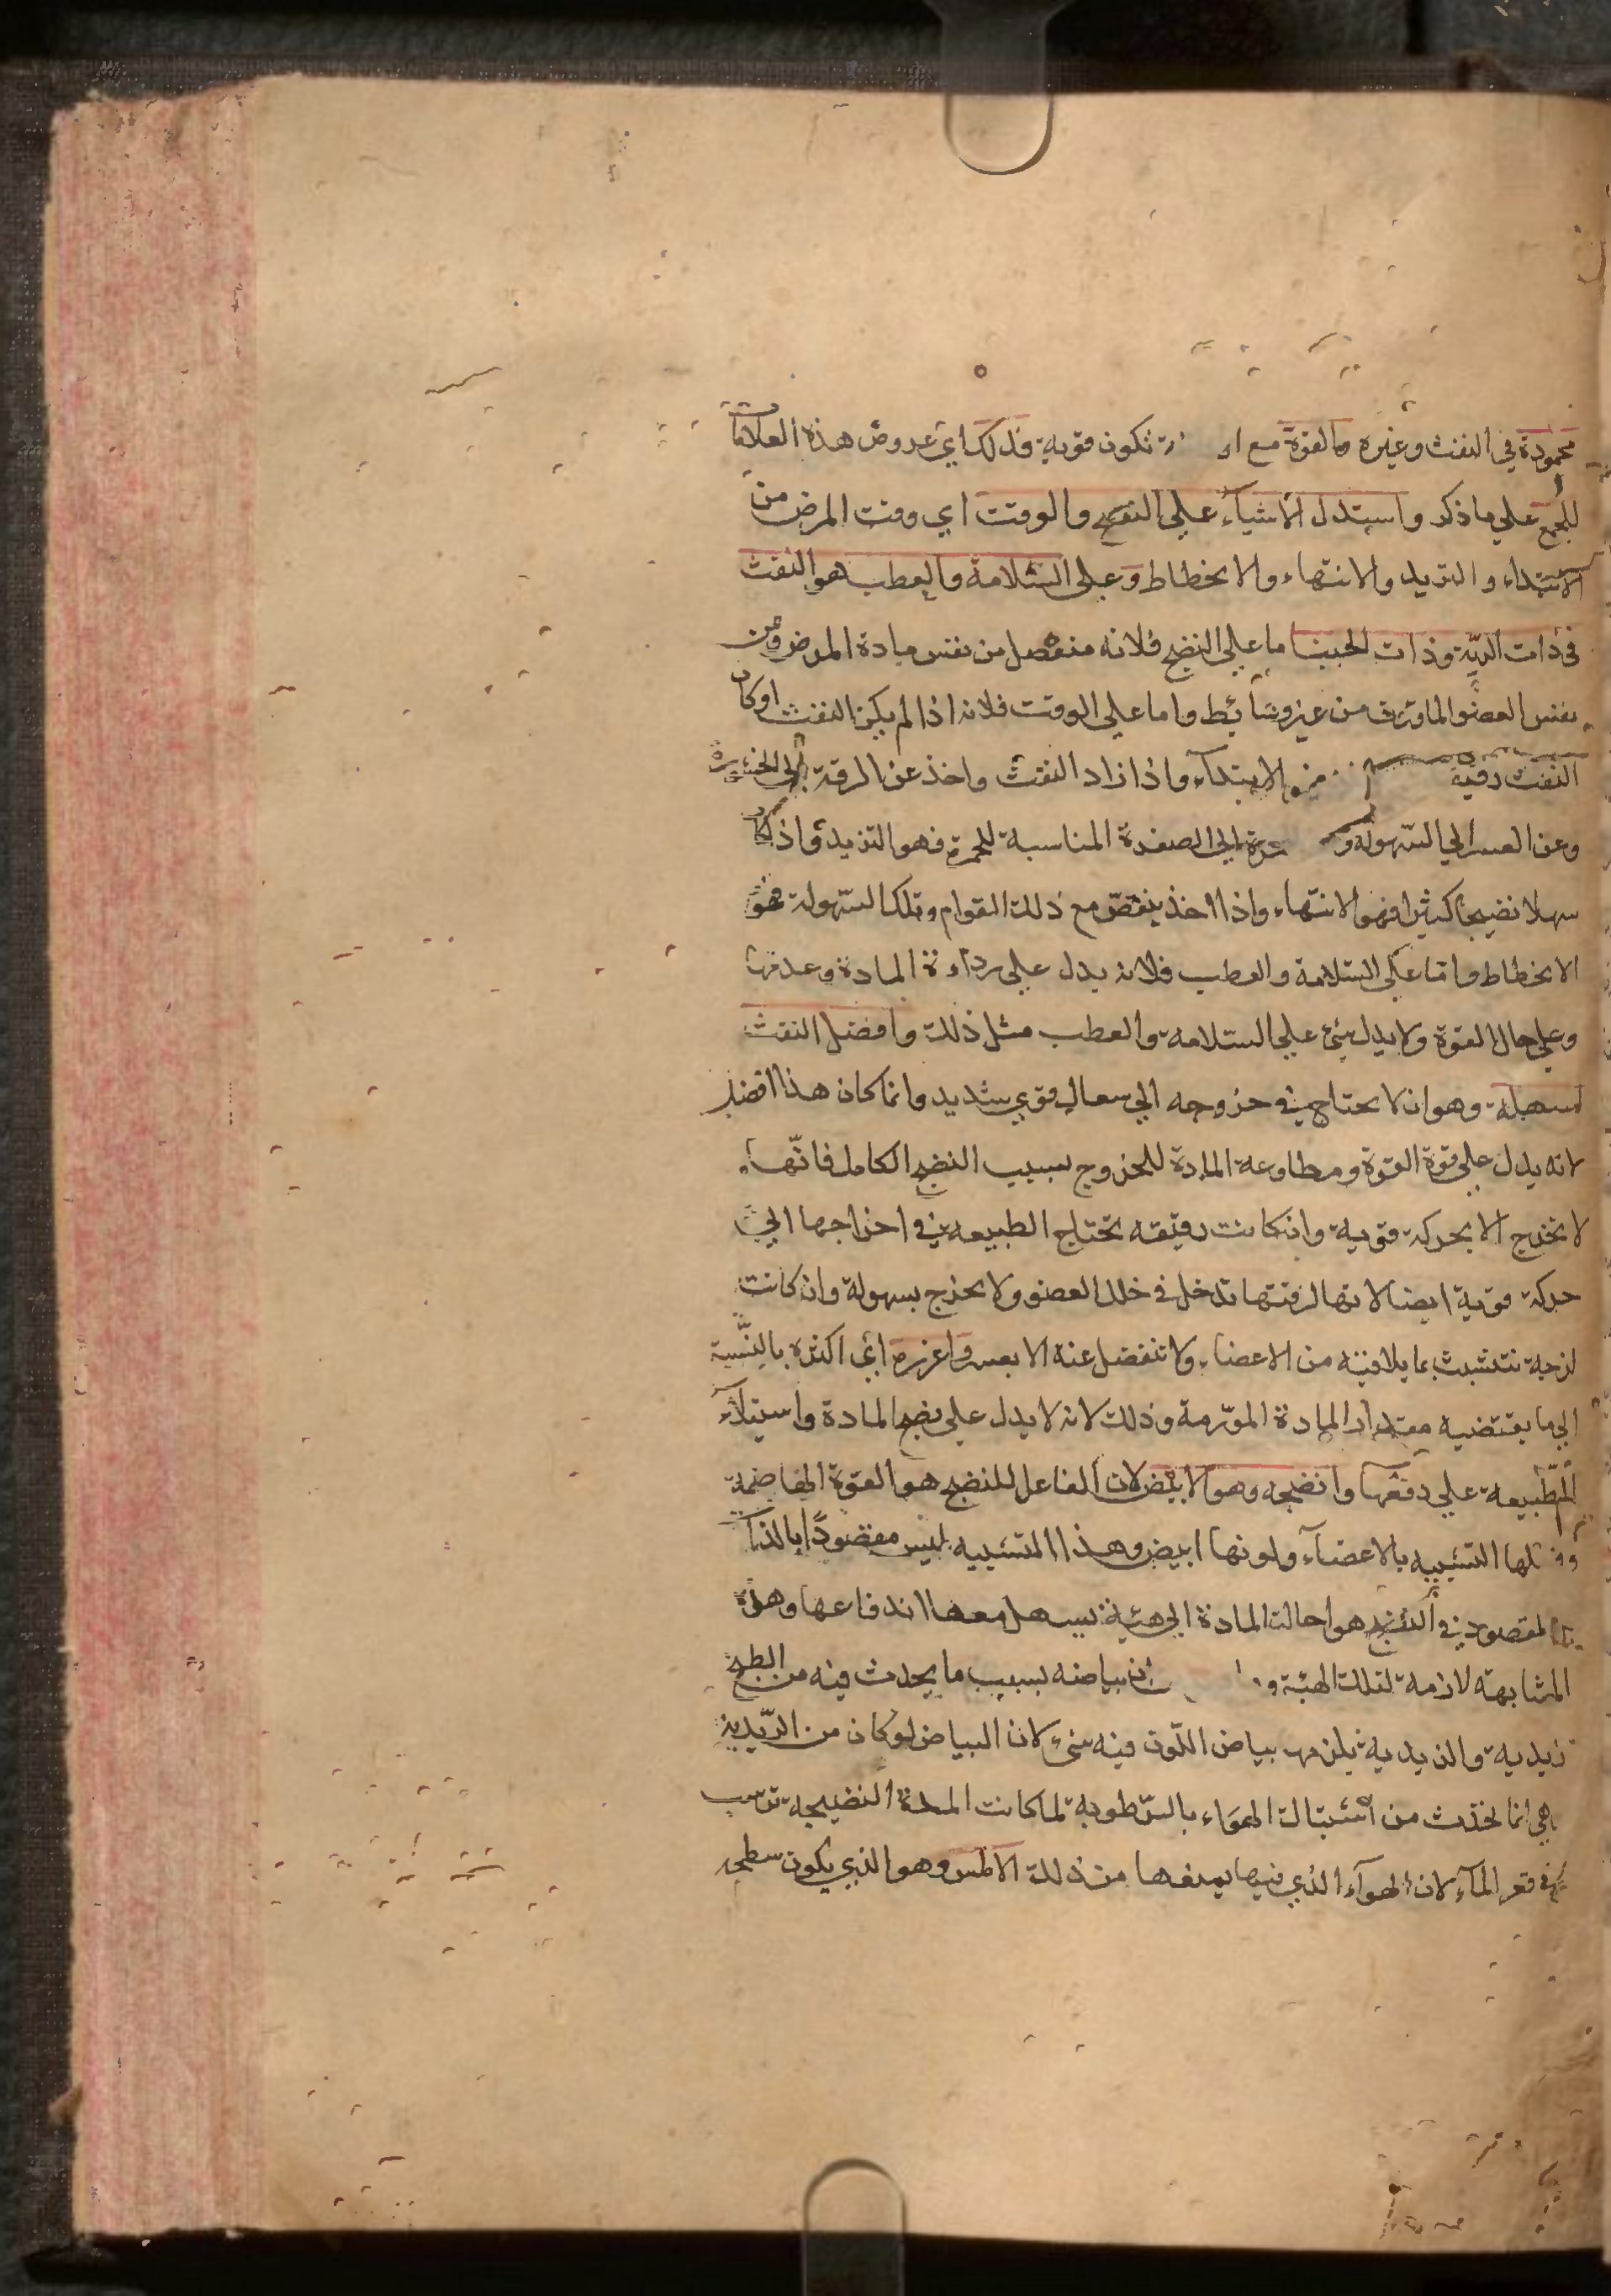 محمودة في النفث وغيره والقوة مع تكون قوية فذلك اي عروض هذه العلامات
للجمع علي ما ذكر واستدل الاشياء علي النضج والوقت اي وقت المرض من
الابتداء والتزيد والانتهاء والانحطاط وعلي السلامة والعطب هو النفث
في ذات الريّة وذات الجنب اما علي النضج فلانه منفصل من نفس مادة المرض ومن
نفس العضو الماوف من غير وسائط واما علي الوقت فلانه اذا لم يكن النفث او كان
النفث الابتدآء واذا زاد النفث واخذ عن الرقة الي
وعن العسر الي السهولة الي الصفرة المناسبة للحمرة فهو التزيد واذا كان
سهلا نضيجا كثيرا فهو الانتهاء واذا اخذ ينقص مع ذلك القوام وتلك السهولة فهو
الانحطاط واما علي السلامة والعطب فلانه يدل علي رداءة المادة وعدمها
وعلي حال القوة ولا يدل شئ علي السلامة والعطب مثل ذلك وافضل النفث
اسهله وهو ان لا يحتاج في خروجه الي سعال قوي شديد وانما كان هذا افضل
لانه يدل علي قوة القوة ومطاوعة المادة للخروج بسبب النضج الكامل فانّها
لا تخرج الا بحركة قوية وان كانت رقيقه تحتاج الطبيعه في اخراجها الي
حركة قوية ايضا لانها لرقتها تدخل في خلل العضو ولا يخرج بسهولة وان كانت
لزجة تتشبث بما يلاقيه من الاعضاء ولا تنفصل عنه الا بعسر واغزره اي اكثره بالنسبة
الي ما يقتضيه مقدار المادة المورّمة وذلك لانه لا يدل علي نضج المادة واستيلآء
الطبيعه علي دفعها وانضجه وهو الابيض لان الفاعل للنضج هو القوة الهاضمة
التشبيه بالاعضآء ولونها ابيض وهذا التشبيه ليس مقصودا بالذات
المقصود في النضج هو احالة المادة الي هيئة يسهل معها اندفاعها وهذه
المشابهة لازمة لتلك الهيئة بياضه بسبب ما يحدث فيه من الطبخ
زبدية والزبدية يلزمها بياض اللون فيه شئ لان البياض لو كان من الزبدية
انما تحدث من اشتباك الهواء بالرطوبة لما كانت المدة النضيجه ترسب
في قعر المآء لان الهوآء الذي فيها يمنعها من ذلك الاملس وهو الذي يكون سطحه